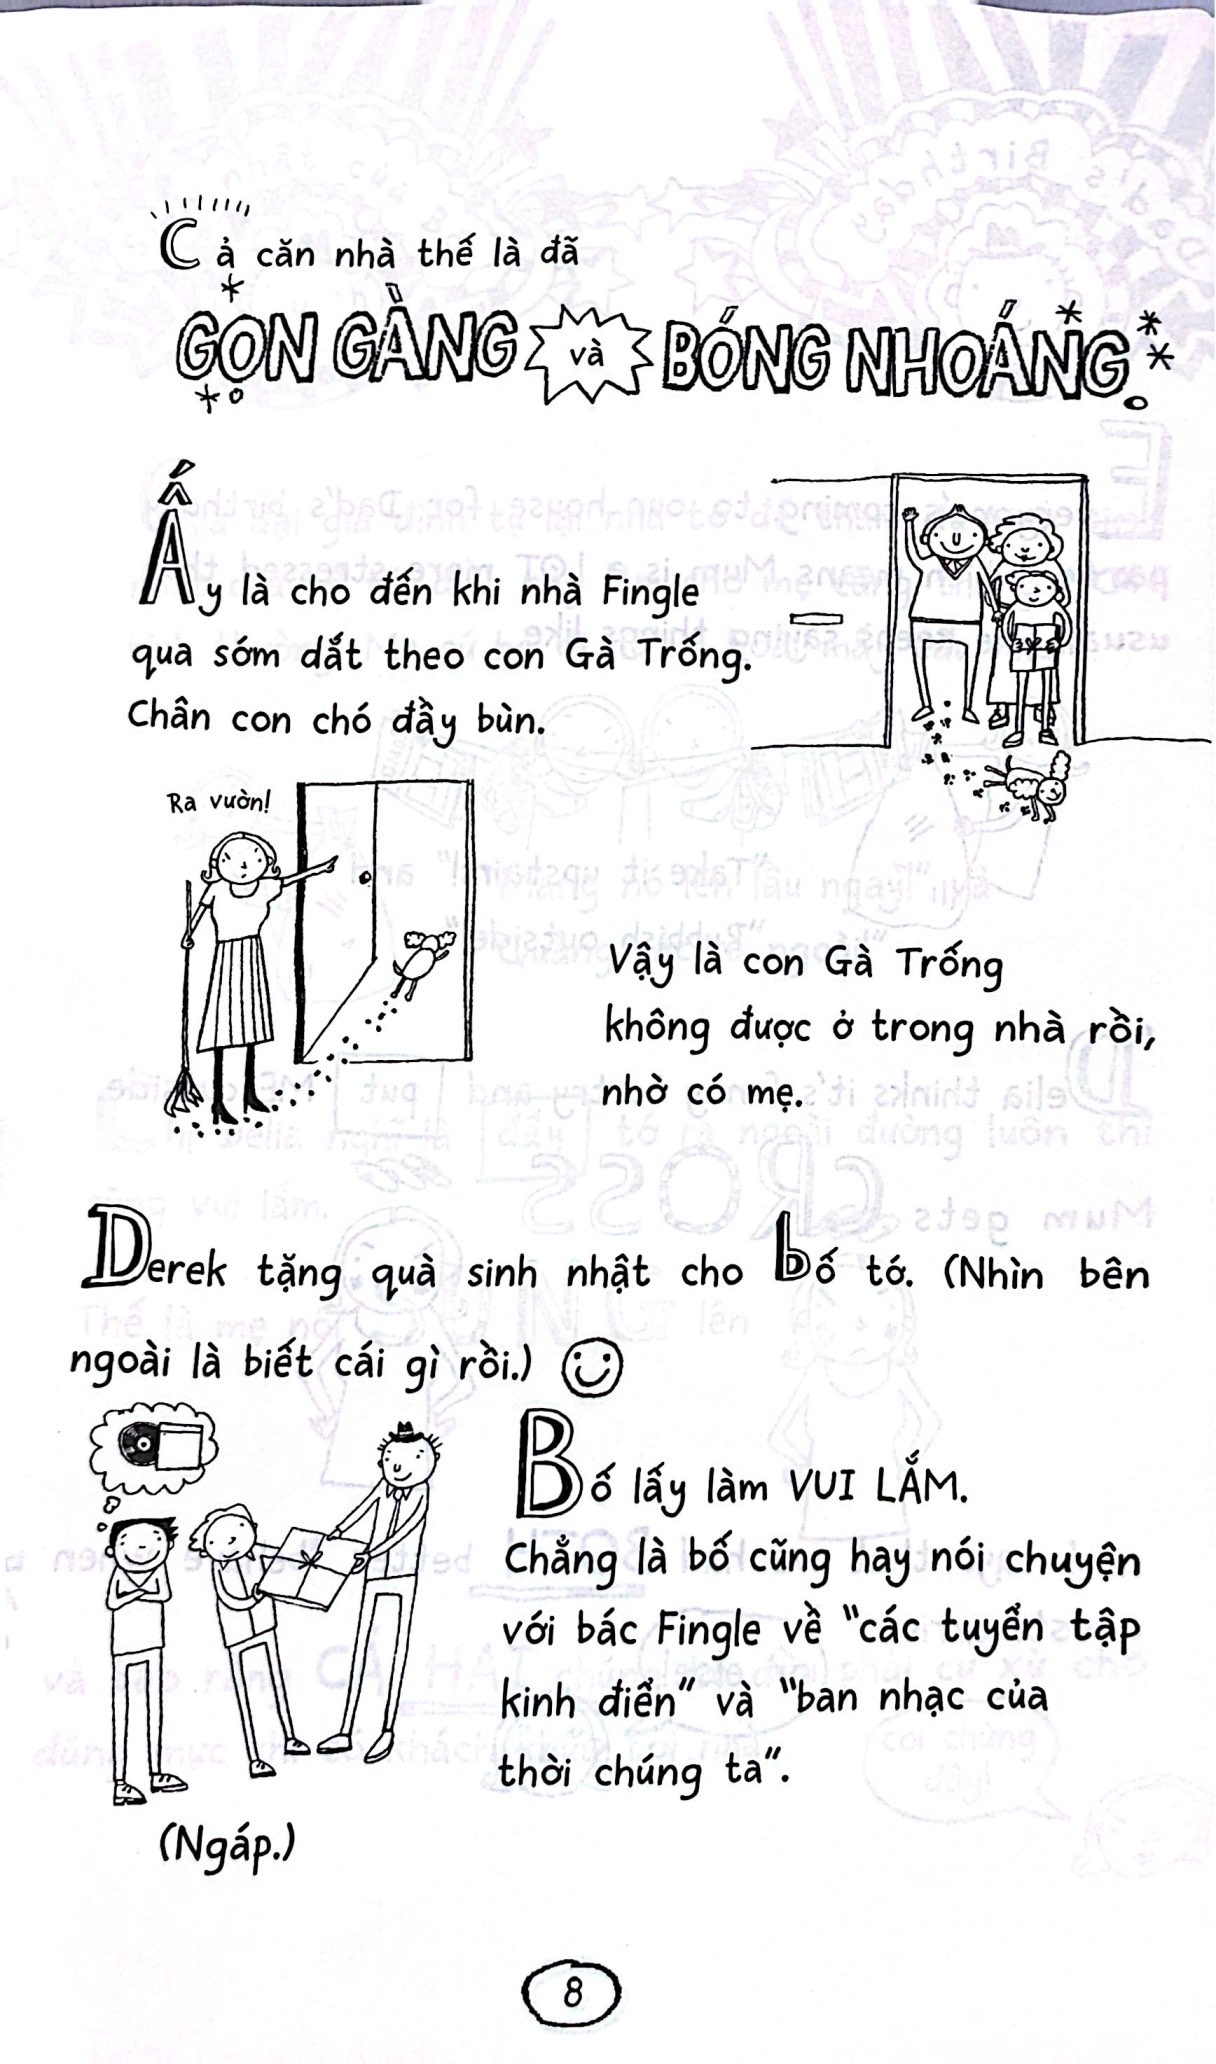 Cả căn nhà thế là đã
GỌN GÀNG và BÓNG NHOÁNG.
Ấy là cho đến khi nhà Fingle
qua sớm dắt theo con Gà Trống.
Chân con chó đầy bùn.
Ra vườn!
Vậy là con Gà Trống
không được ở trong nhà rồi,
nhờ có mẹ.
Derek tặng quà sinh nhật cho bố tớ. (Nhìn bên
ngoài là biết cái gì rồi.)
Bố lấy làm VUI LẮM.
Chẳng là bố cũng hay nói chuyện
với bác Fingle về "các tuyển tập
kinh điển" và "ban nhạc của
thời chúng ta".
(Ngáp.)
8